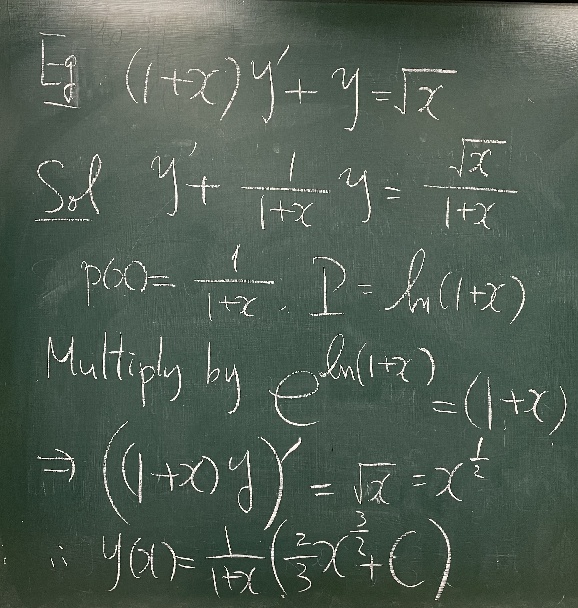 Eg (1+x)y' + y = √x
Sol y' + 1/(1+x) y = √x/(1+x)
p(x) = 1/(1+x). P = ln(1+x)
Multiply by e^{ln(1+x)} = (1+x)
⇒ ((1+x)y)' = √x = x^{1/2}
∴ y(x) = 1/(1+x) (2/3 x^{3/2} + C)